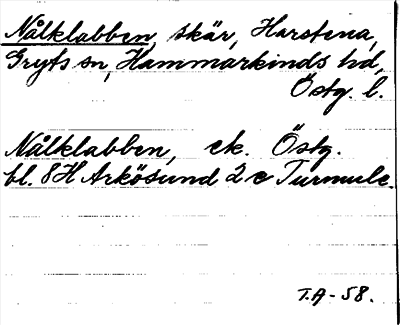 Nålklabben, skär, Harstena,
Gryts sn, Hammarkinds hd,
Östg. l.
Nålklabben, ek. Östg.
bl. 8H Arkösund 2 c Turmule.
T.A-58.